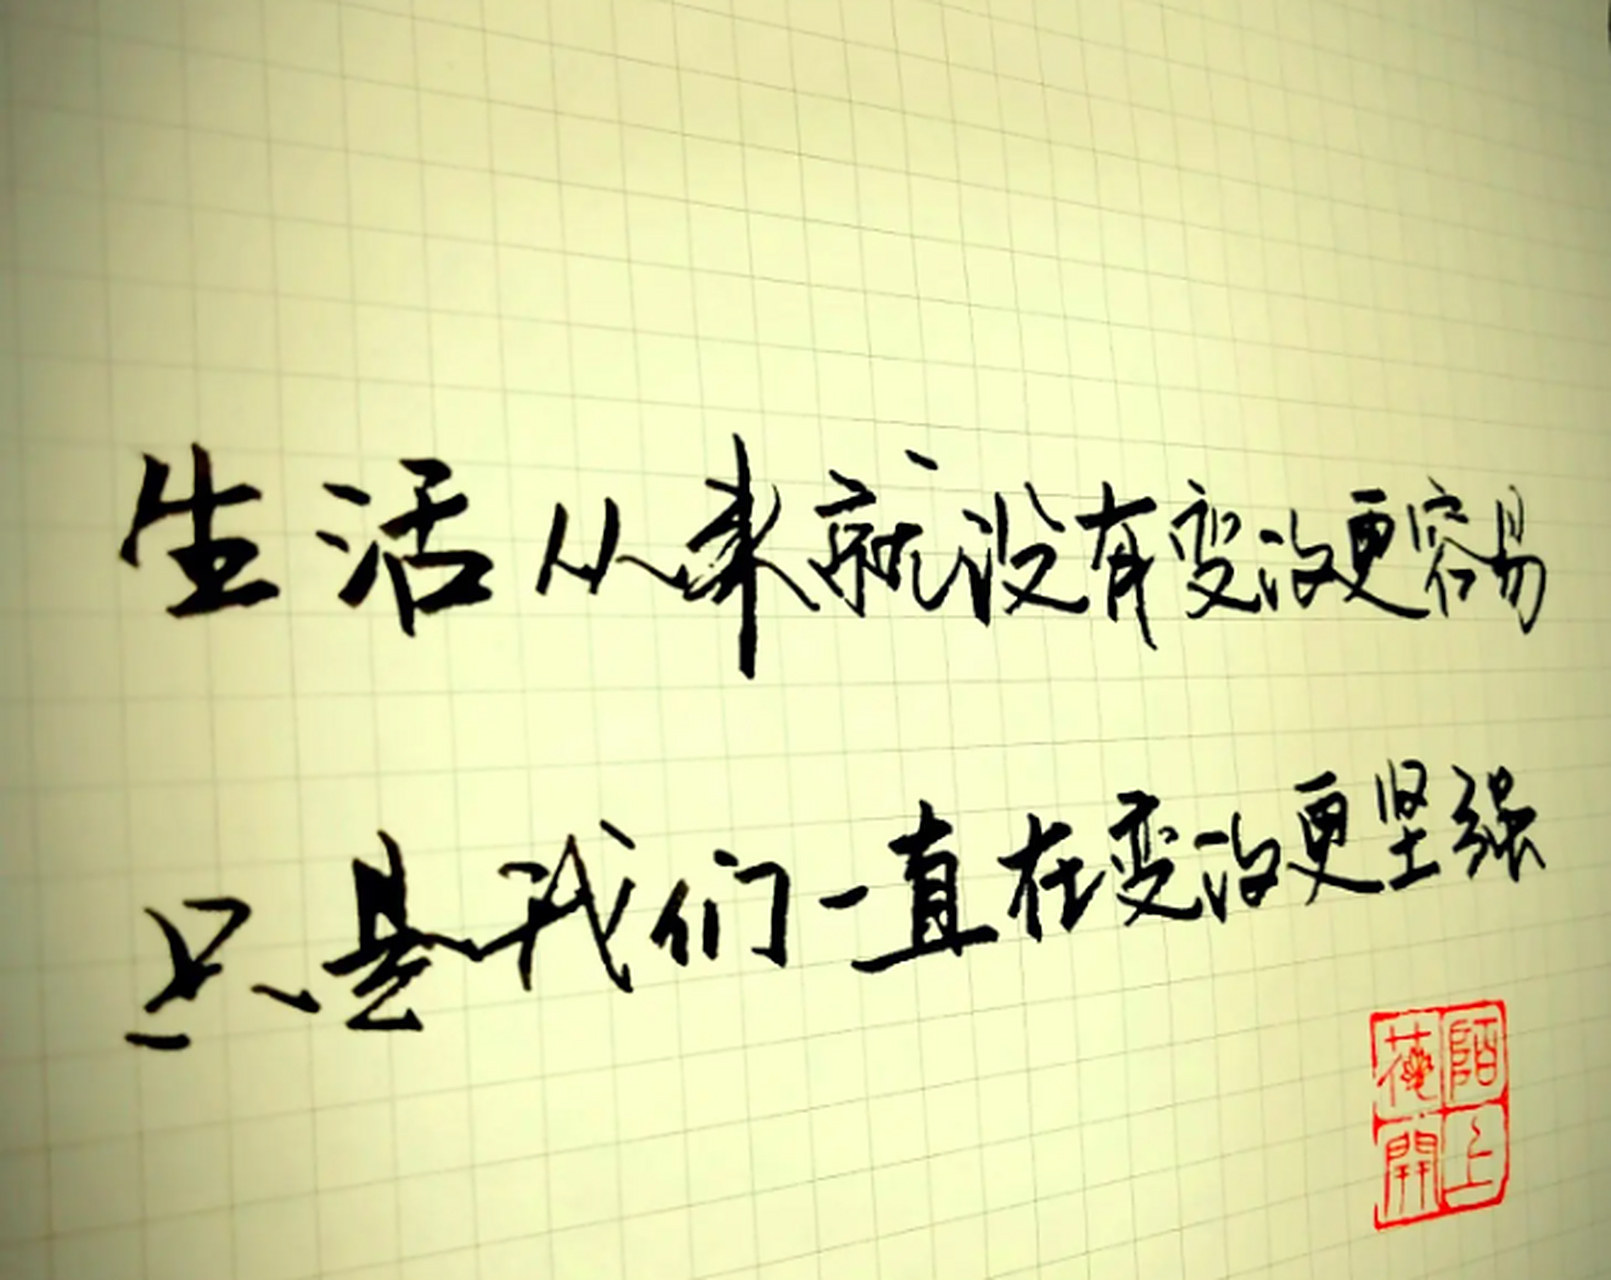 生活从来就没有变得更容易
只是我们一直在变得更坚强
陌上
花開